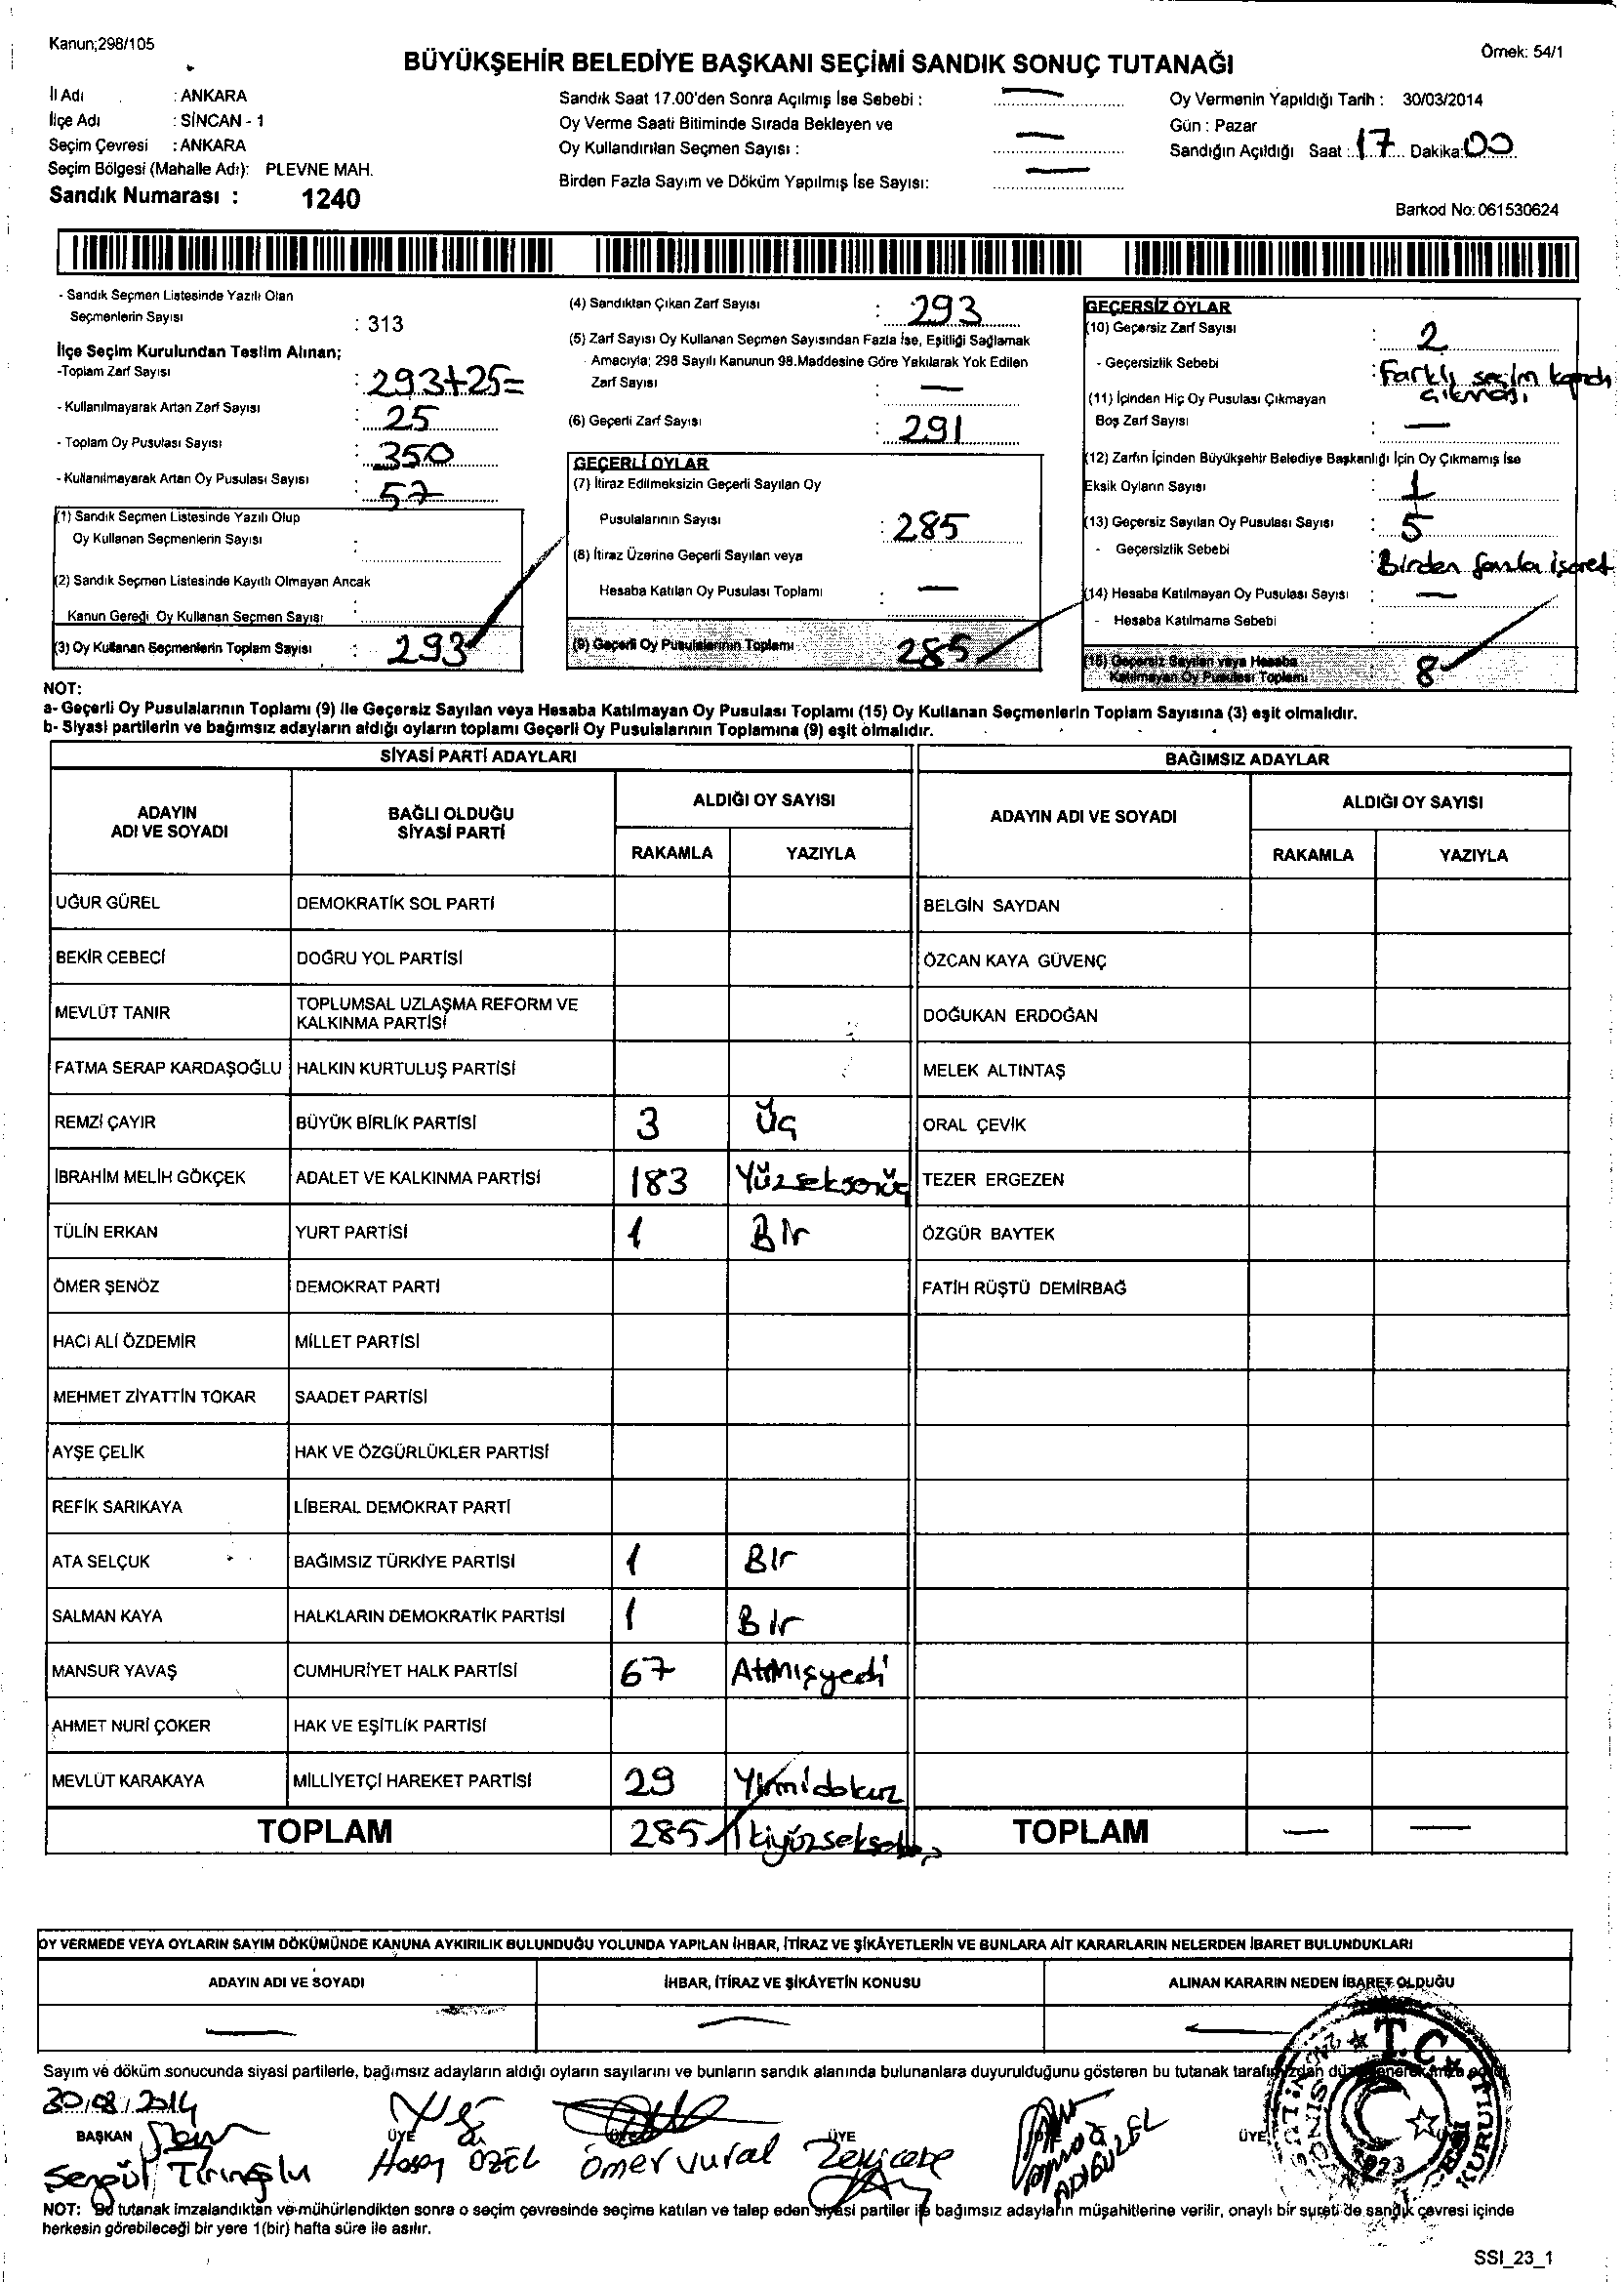 Kanun;298/105
Örnek: 54/1
BÜYÜKŞEHİR BELEDİYE BAŞKANI SEÇİMİ SANDIK SONUÇ TUTANAĞI
İl Adı : ANKARA
İlçe Adı : SİNCAN - 1
Seçim Çevresi : ANKARA
Seçim Bölgesi (Mahalle Adı): PLEVNE MAH.
Sandık Numarası : 1240
Sandık Saat 17.00'den Sonra Açılmış İse Sebebi : —
Oy Verme Saati Bitiminde Sırada Bekleyen ve
Oy Kullandırılan Seçmen Sayısı : —
Birden Fazla Sayım ve Döküm Yapılmış İse Sayısı: —
Oy Vermenin Yapıldığı Tarih : 30/03/2014
Gün : Pazar
Sandığın Açıldığı Saat : 17 Dakika: 00
Barkod No: 061530624
- Sandık Seçmen Listesinde Yazılı Olan
Seçmenlerin Sayısı : 313
İlçe Seçim Kurulundan Teslim Alınan;
-Toplam Zarf Sayısı : 293+25=
- Kullanılmayarak Artan Zarf Sayısı : 25
- Toplam Oy Pusulası Sayısı : 350
- Kullanılmayarak Artan Oy Pusulası Sayısı : 57
(1) Sandık Seçmen Listesinde Yazılı Olup
Oy Kullanan Seçmenlerin Sayısı :
(2) Sandık Seçmen Listesinde Kayıtlı Olmayan Ancak
Kanun Gereği Oy Kullanan Seçmen Sayısı :
(3) Oy Kullanan Seçmenlerin Toplam Sayısı : 293
(4) Sandıktan Çıkan Zarf Sayısı : 293
(5) Zarf Sayısı Oy Kullanan Seçmen Sayısından Fazla İse, Eşitliği Sağlamak
Amacıyla; 298 Sayılı Kanunun 98.Maddesine Göre Yakılarak Yok Edilen
Zarf Sayısı : —
(6) Geçerli Zarf Sayısı : 291
GEÇERLİ OYLAR
(7) İtiraz Edilmeksizin Geçerli Sayılan Oy
Pusulalarının Sayısı : 285
(8) İtiraz Üzerine Geçerli Sayılan veya
Hesaba Katılan Oy Pusulası Toplamı : —
(9) Geçerli Oy Pusulalarının Toplamı 285
GEÇERSİZ OYLAR
(10) Geçersiz Zarf Sayısı : 2
- Geçersizlik Sebebi : Farklı seçim
çıkması
(11) İçinden Hiç Oy Pusulası Çıkmayan
Boş Zarf Sayısı : —
(12) Zarfın İçinden Büyükşehir Belediye Başkanlığı İçin Oy Çıkmamış İse
Eksik Oyların Sayısı : 1
(13) Geçersiz Sayılan Oy Pusulası Sayısı : 5
- Geçersizlik Sebebi : Birden fazla işaret
(14) Hesaba Katılmayan Oy Pusulası Sayısı : —
- Hesaba Katılmama Sebebi :
(15) Geçersiz Sayılan veya Hesaba
Katılmayan Oy Pusulası Toplamı 8
NOT:
a- Geçerli Oy Pusulalarının Toplamı (9) ile Geçersiz Sayılan veya Hesaba Katılmayan Oy Pusulası Toplamı (15) Oy Kullanan Seçmenlerin Toplam Sayısına (3) eşit olmalıdır.
b- Siyasi partilerin ve bağımsız adayların aldığı oyların toplamı Geçerli Oy Pusulalarının Toplamına (9) eşit olmalıdır.
SİYASİ PARTİ ADAYLARI
BAĞIMSIZ ADAYLAR
ADAYIN ADI VE SOYADI
BAĞLI OLDUĞU SİYASİ PARTİ
ALDIĞI OY SAYISI
RAKAMLA YAZIYLA
ADAYIN ADI VE SOYADI
ALDIĞI OY SAYISI
RAKAMLA YAZIYLA
UĞUR GÜREL DEMOKRATİK SOL PARTİ BELGİN SAYDAN
BEKİR CEBECİ DOĞRU YOL PARTİSİ ÖZCAN KAYA GÜVENÇ
MEVLÜT TANIR TOPLUMSAL UZLAŞMA REFORM VE KALKINMA PARTİSİ DOĞUKAN ERDOĞAN
FATMA SERAP KARDAŞOĞLU HALKIN KURTULUŞ PARTİSİ MELEK ALTINTAŞ
REMZİ ÇAYIR BÜYÜK BİRLİK PARTİSİ 3 Üç ORAL ÇEVİK
İBRAHİM MELİH GÖKÇEK ADALET VE KALKINMA PARTİSİ 183 Yüzseksenüç TEZER ERGEZEN
TÜLİN ERKAN YURT PARTİSİ 1 Bir ÖZGÜR BAYTEK
ÖMER ŞENÖZ DEMOKRAT PARTİ FATİH RÜŞTÜ DEMİRBAĞ
HACI ALİ ÖZDEMİR MİLLET PARTİSİ
MEHMET ZİYATTİN TOKAR SAADET PARTİSİ
AYŞE ÇELİK HAK VE ÖZGÜRLÜKLER PARTİSİ
REFİK SARIKAYA LİBERAL DEMOKRAT PARTİ
ATA SELÇUK BAĞIMSIZ TÜRKİYE PARTİSİ 1 Bir
SALMAN KAYA HALKLARIN DEMOKRATİK PARTİSİ 1 Bir
MANSUR YAVAŞ CUMHURİYET HALK PARTİSİ 67 Atmışyedi
AHMET NURİ ÇOKER HAK VE EŞİTLİK PARTİSİ
MEVLÜT KARAKAYA MİLLİYETÇİ HAREKET PARTİSİ 29 Yirmidokuz
TOPLAM 285 TOPLAM — —
OY VERMEDE VEYA OYLARIN SAYIM DÖKÜMÜNDE KANUNA AYKIRILIK BULUNDUĞU YOLUNDA YAPILAN İHBAR, İTİRAZ VE ŞİKÂYETLERİN VE BUNLARA AİT KARARLARIN NELERDEN İBARET BULUNDUKLARI
ADAYIN ADI VE SOYADI İHBAR, İTİRAZ VE ŞİKÂYETİN KONUSU ALINAN KARARIN NEDEN İBARET OLDUĞU
— — —
Sayım ve döküm sonucunda siyasi partilerle, bağımsız adayların aldığı oyların sayılarını ve bunların sandık alanında bulunanlara duyurulduğunu gösteren bu tutanak
BAŞKAN ÜYE ÜYE ÜYE
Hasan ÖZEL Ömer vural
ADIGÜZEL
T.C.
NOT: Bu tutanak imzalandıktan ve mühürlendikten sonra o seçim çevresinde seçime katılan ve talep eden siyasi partiler ile bağımsız adayların müşahitlerine verilir, onaylı bir sureti de sandık çevresi içinde
herkesin görebileceği bir yere 1(bir) hafta süre ile asılır.
SSI_23_1